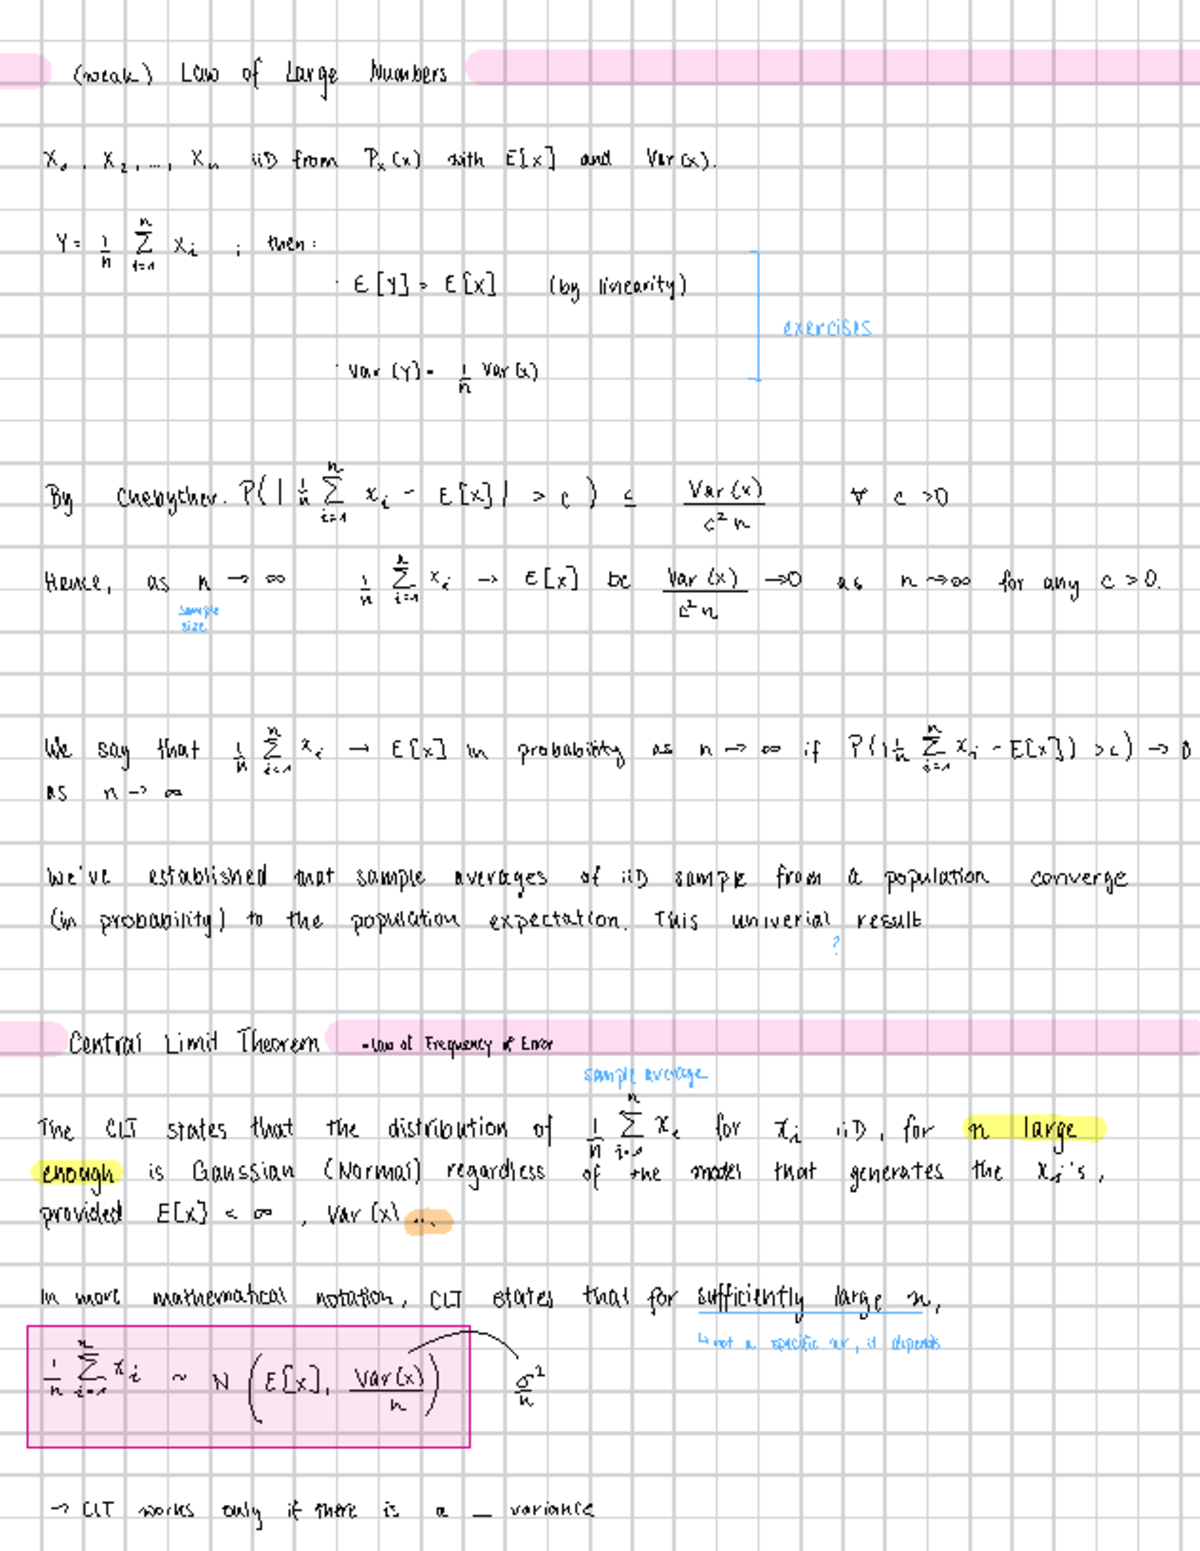 (weak) Law of Large Numbers
X₁, X₂, ..., Xₙ iiD from Pₓ(x) with E[x] and Var(x).
Y = 1/n Σᵢ₌₁ⁿ Xᵢ ; then:
· E[Y] = E[X] (by linearity)
exercises
· Var(Y) = 1/n Var(x)
By Chebychev. P(| 1/n Σᵢ₌₁ⁿ xᵢ - E[x] | > c) ≤ Var(x)/c²n ∀ c >0
Hence, as n → ∞ 1/n Σᵢ₌₁ⁿ xᵢ → E[x] bc Var(x)/c²n →0 as n→∞ for any c > 0.
sample
size
We say that 1/n Σᵢ₌₁ⁿ xᵢ → E[x] in probability as n → ∞ if P(| 1/n Σᵢ₌₁ⁿ xᵢ - E[x]) > c) → 0
as n → ∞
We've established that sample averages of iiD sample from a population converge
(in probability) to the population expectation. This univerial result
?
Central Limit Theorem -Law of Frequency of Error
sample average
The CLT states that the distribution of 1/n Σᵢ₌₁ⁿ xᵢ for xᵢ iiD, for n large
enough is Gaussian (Normal) regardless of the model that generates the xᵢ's,
provided E[x] < ∞ , Var(x) ...
In more mathematical notation, CLT states that for sufficiently large n,
↳ not a specific nr, it depends
1/n Σᵢ₌₁ⁿ xᵢ ~ N (E[x], Var(x)/n) σ²/n
→ CLT works only if there is a _ variance